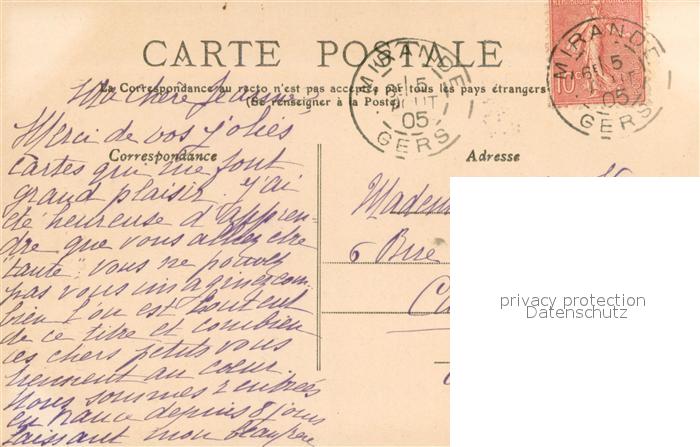 CARTE POSTALE
La Correspondance au recto n'est pas acceptée par tous les pays étrangers
(Se renseigner à la Poste)
MIRANDE
15
AOUT
05
GERS
MIRANDE
15
AOUT
05
GERS
10
Ma chère Jeanne
Correspondance
Merci de vos jolies
cartes qui me font
grand plaisir. J'ai
été heureuse d'appren-
dre que vous allez être
"tante" vous ne pouvez
pas vous imaginer com-
bien l'on est
de ce titre et combien
ces chers petits vous
tiennent au coeur.
Nous sommes rentrées
en France depuis 8 jours
laissant mon beau frère
Adresse
6 Rue
privacy protection
Datenschutz